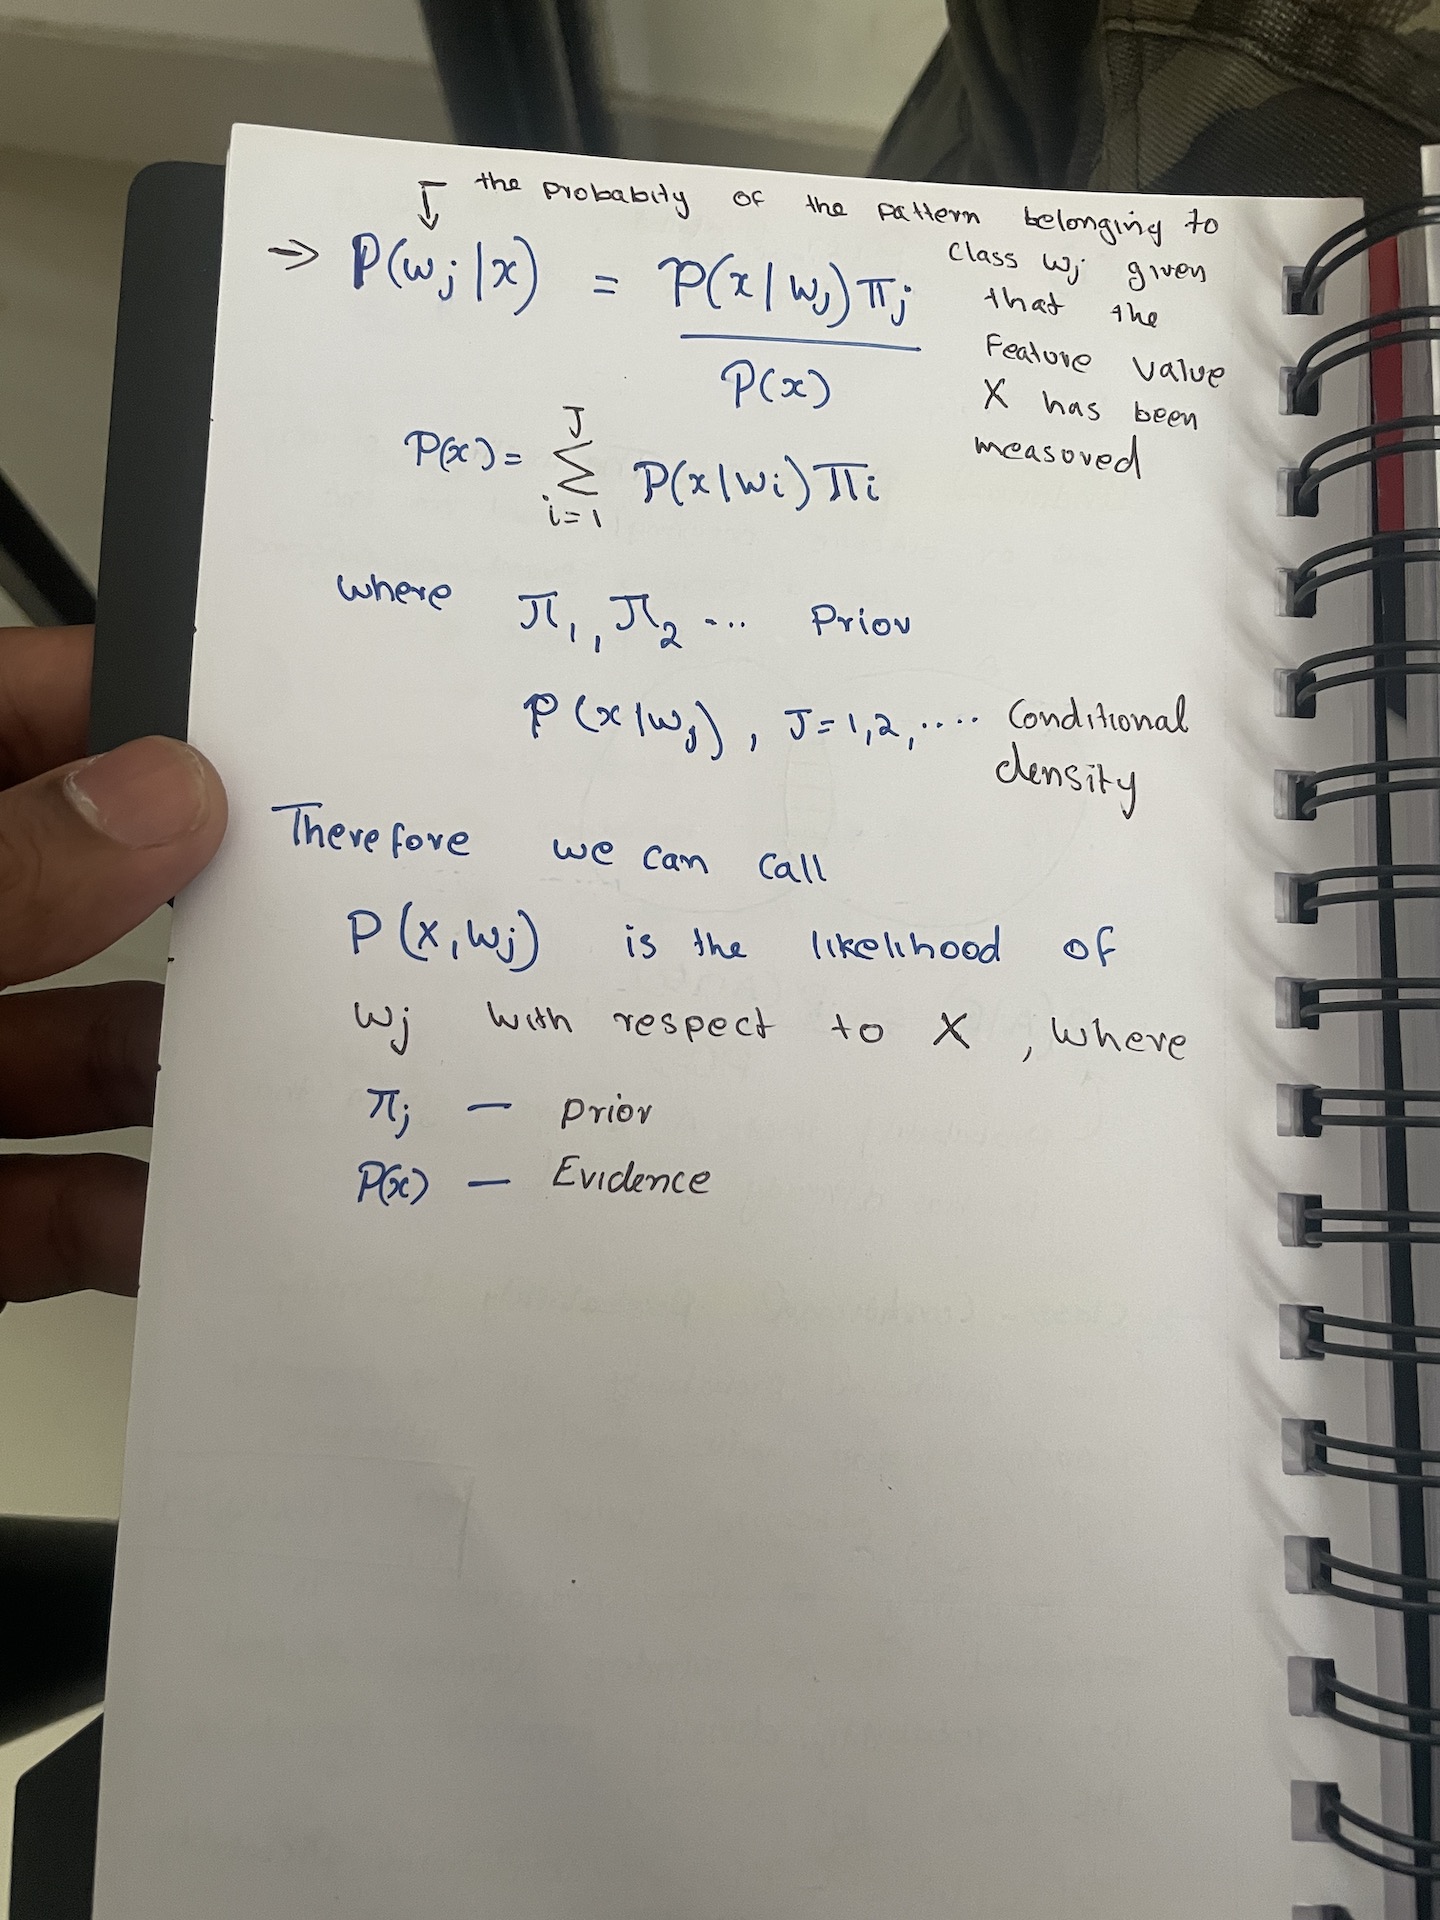 the probabity of the pattern belonging to
class wj given
that the
Feature value
X has been
measured
→ P(wj|x) = P(x|wj)πj / P(x)
P(x) = Σ i=1 J P(x|wi)πi
where π1, π2 ... Prior
P(x|wj), J=1,2,.... Conditional
density
Therefore we can call
P(x,wj) is the likelihood of
wj with respect to X, where
πj — prior
P(x) — Evidence